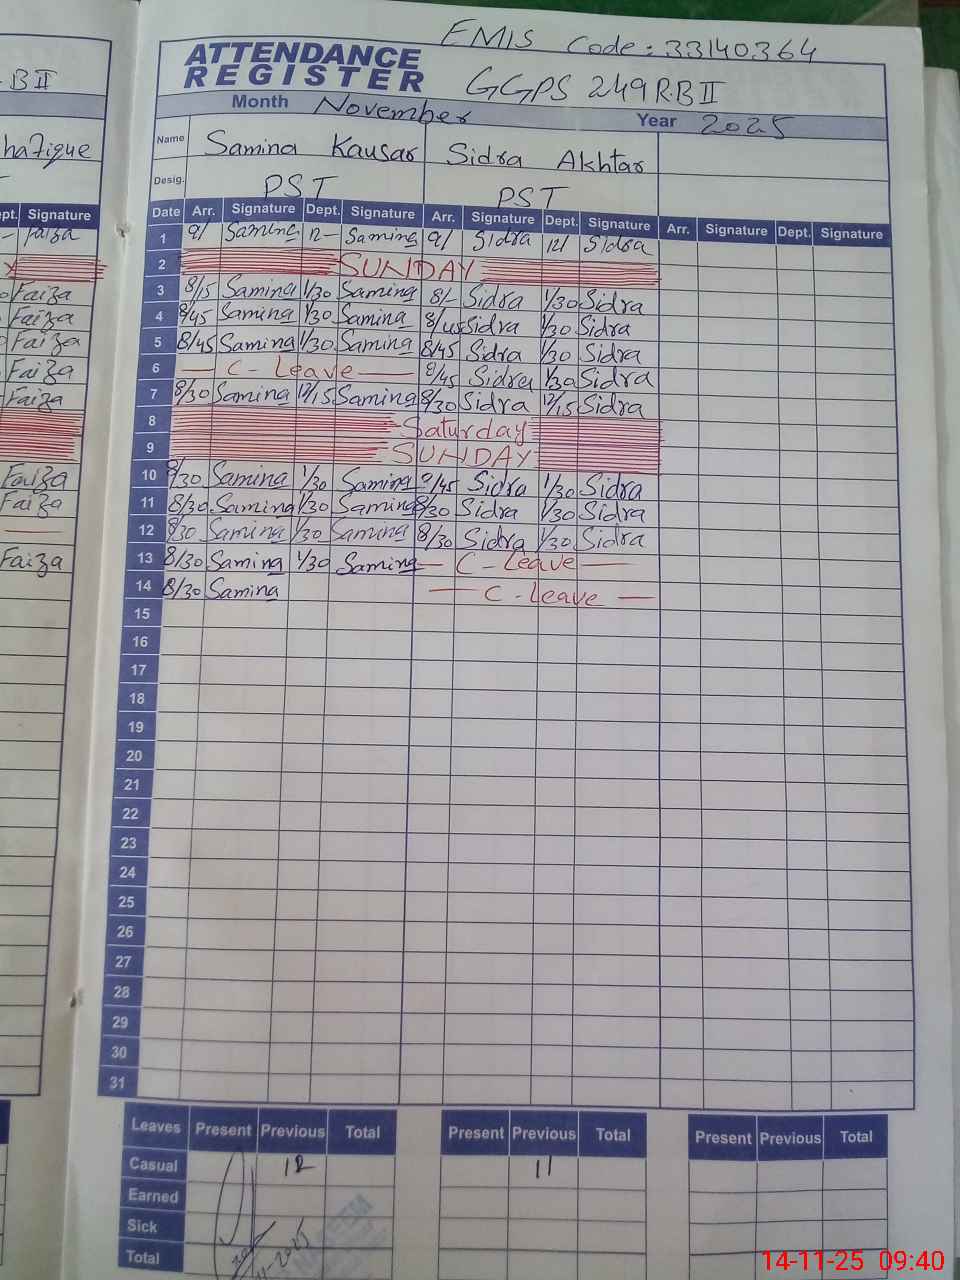 EMIS Code: 33140364
ATTENDANCE
REGISTER
GGPS 249 R.B II
- B II
Month November Year 2025
Name Samina Kausar Sidra Akhtar
hafique
Desig. PST PST
pt. Signature
Date Arr. Signature Dept. Signature Arr. Signature Dept. Signature Arr. Signature Dept. Signature
Faiza
1 9/ Samina 12- Samina 9/ Sidra 12/ Sidra
2 SUNDAY
Faiza 3 8/15 Samina 1/30 Samina 8/- Sidra 1/30 Sidra
Faiza 4 8/45 Samina 1/30 Samina 8/45 Sidra 1/30 Sidra
Faiza 5 8/45 Samina 1/30 Samina 8/45 Sidra 1/30 Sidra
Faiza 6 — C - Leave — 8/45 Sidra 1/30 Sidra
Faiza 7 8/30 Samina 12/15 Samina 8/30 Sidra 12/15 Sidra
8 Saturday
9 SUNDAY
Faiza 10 8/30 Samina 1/30 Samina 8/45 Sidra 1/30 Sidra
Faiza 11 8/30 Samina 1/30 Samina 8/30 Sidra 1/30 Sidra
12 8/30 Samina 1/30 Samina 8/30 Sidra 1/30 Sidra
Faiza 13 8/30 Samina 1/30 Samina — C - Leave —
14 8/30 Samina — C - Leave —
15
16
17
18
19
20
21
22
23
24
25
26
27
28
29
30
31
Leaves Present Previous Total Present Previous Total Present Previous Total
Casual 12 11
Earned
Sick
Total
14-11-25 09:40